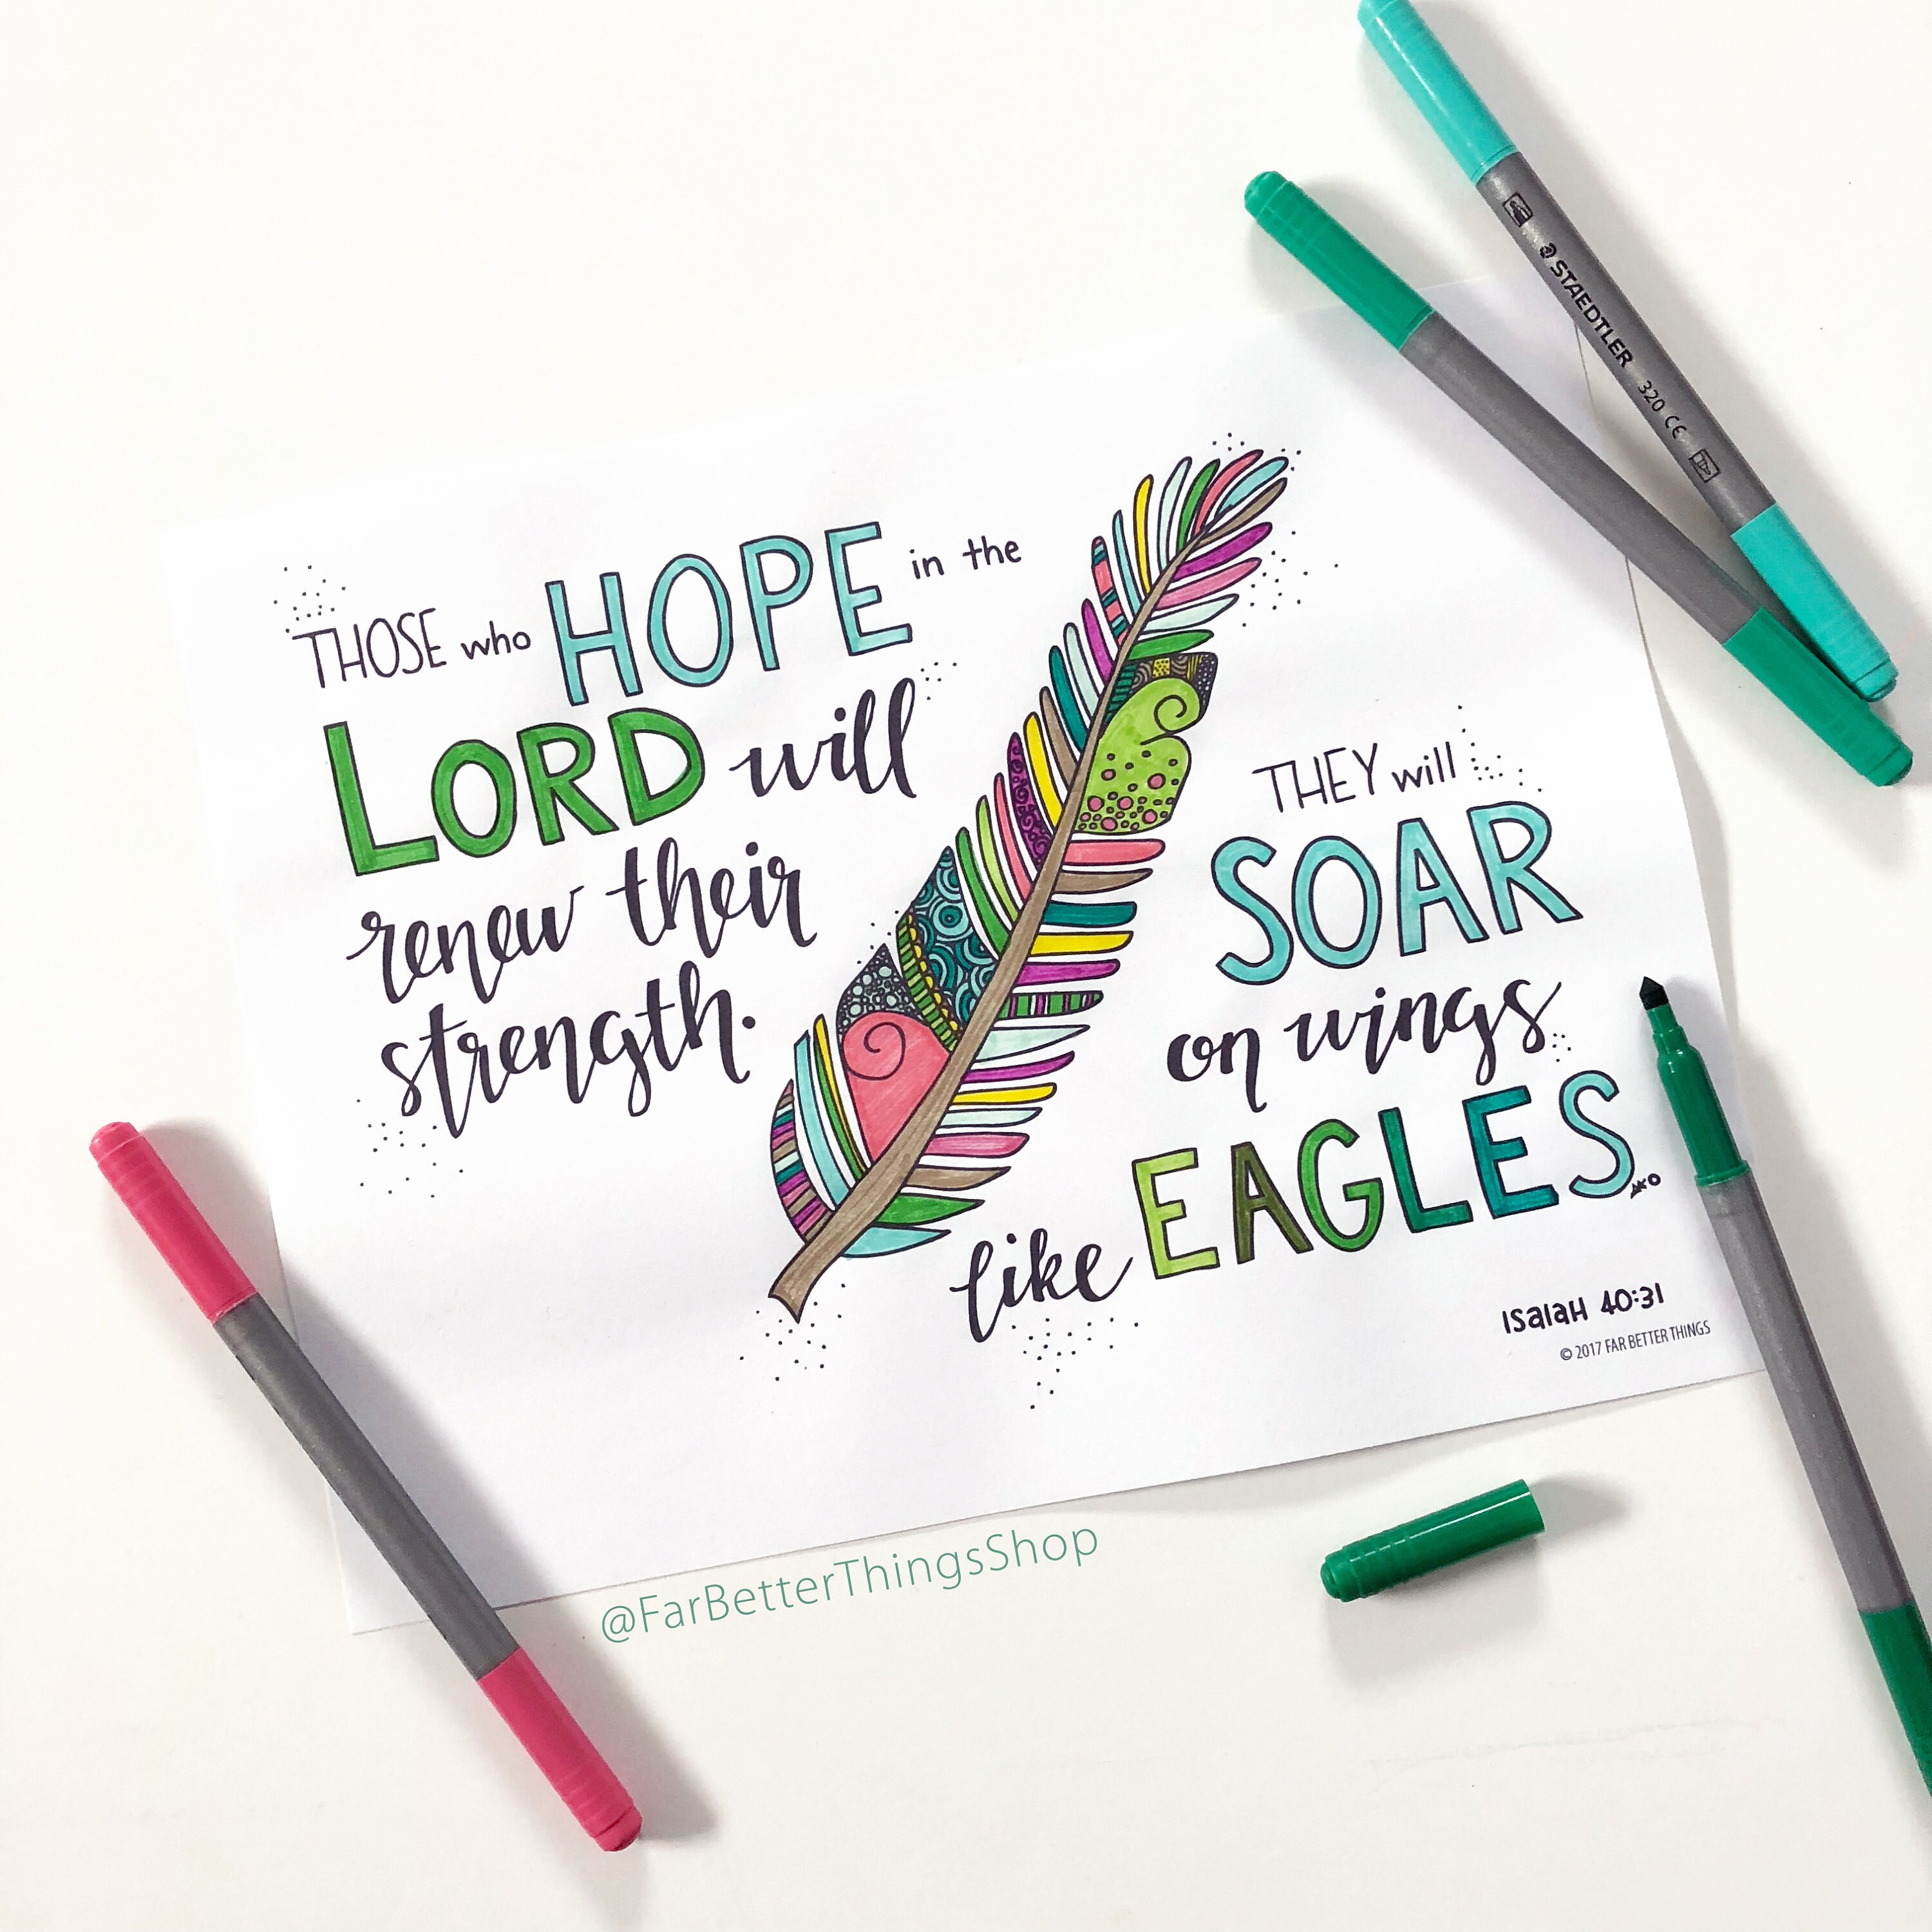 THOSE who HOPE in the
LORD will
renew their
strength.
THEY will
SOAR
on wings
like EAGLES.
Isaiah 40:31
© 2017 FAR BETTER THINGS
@FarBetterThingsShop
STAEDTLER 320 CE